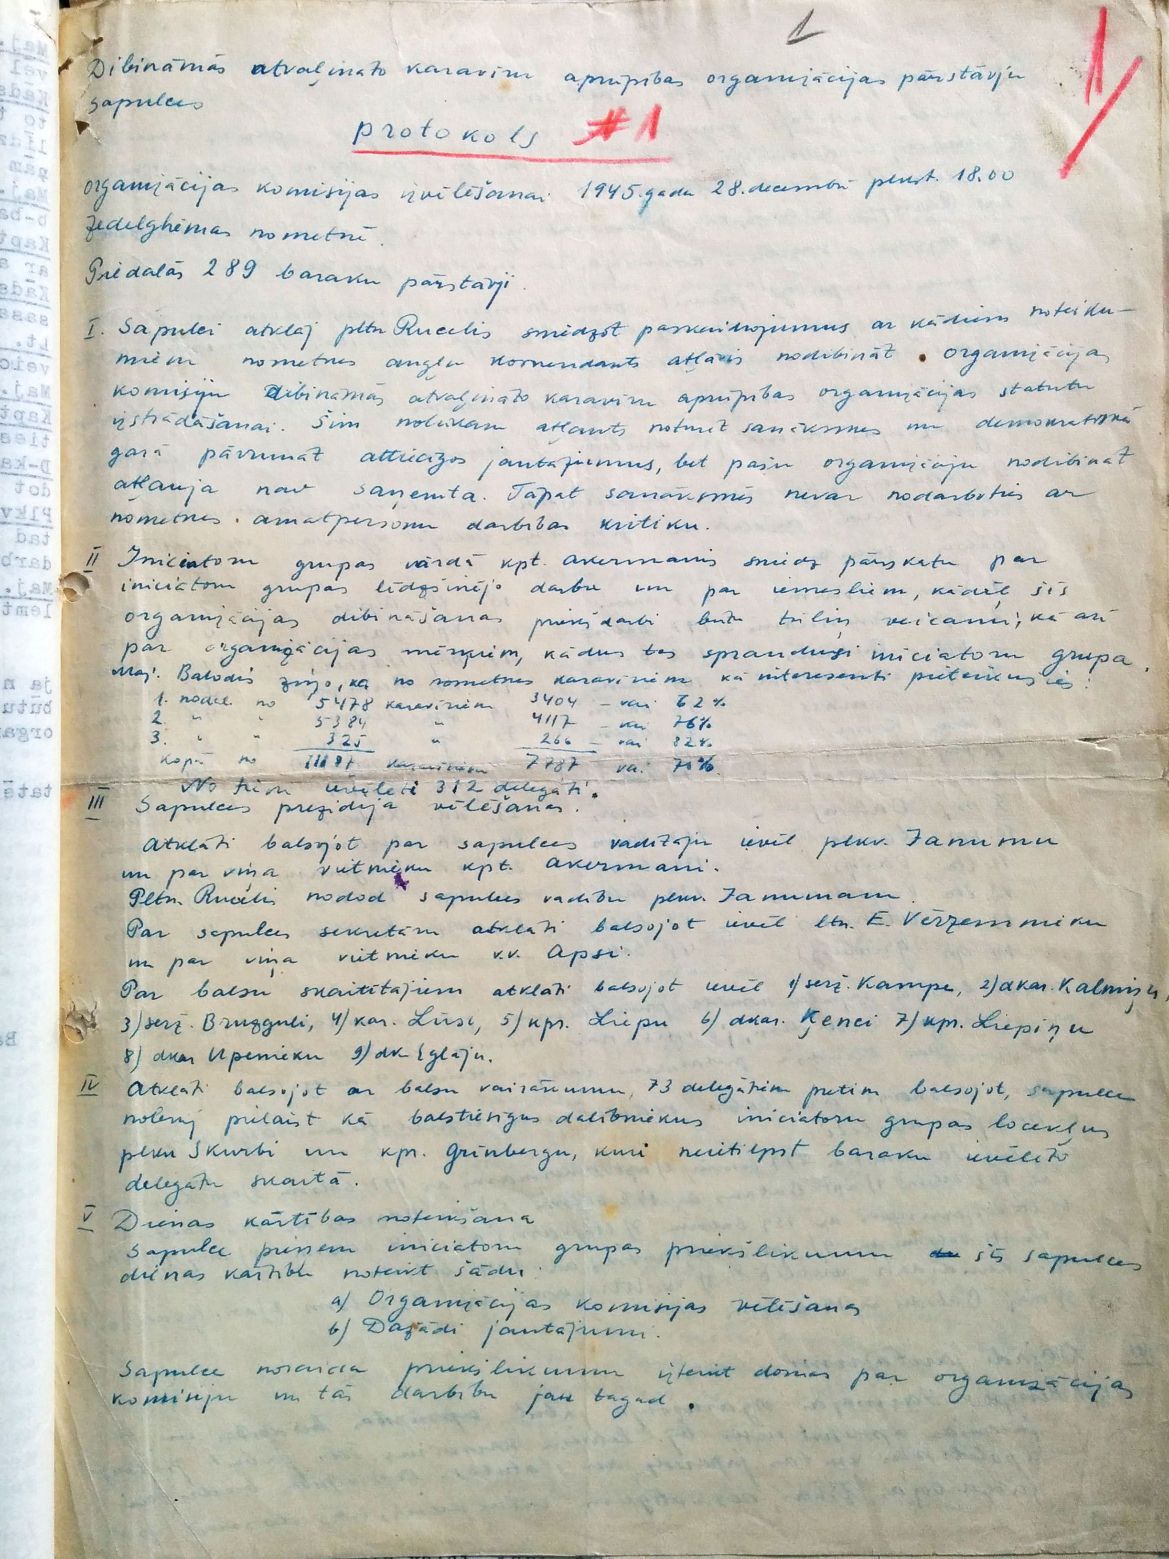 1
1/
Dibināmās atvaļināto karavīru aprūpības organizācijas pārstāvju
sapulces
protokols #1
organizācijas komisijas izvēlēšanai 1945.gada 28.decembrī plkst. 18.00
Zedelghēmas nometnē.
Piedalās 289 baraku pārstāvji.
I. Sapulci atklāj pltn Rucelis sniedzot paskaidrojumus ar kādiem noteiku-
miem nometnes angļu komendants atļāvis nodibināt organizācijas
komisiju Dibināmās atvaļināto karavīru aprūpības organizācijas statutu
izstrādāšanai. Šim nolūkam atļauts noturēt sanāksmes un demokrātiskā
garā pārrunāt attiecīgos jautājumus, bet pašu organizāciju nodibināt
atļauja nav saņemta. Tāpat sanāksmēs nevar nodarboties ar
nometnes amatpersonu darbības kritiku.
II Iniciatoru grupas vārdā kpt. Akermanis sniedz pārskatu par
iniciatoru grupas līdzšinējo darbu un par iemesliem, kādēļ šīs
organizācijas dibināšanas priekšdarbi būtu tūliņ veicami, kā arī
par organizācijas mērķiem, kādus spraudusi iniciatoru grupa.
Maj. Balodis ziņo, ka no nometnes karavīriem kā interesenti pieteikušies:
1. nodal. no 5478 karavīriem 3404 – vai 62%
2. " " 5384 " 4117 – vai 76%
3. " " 325 " 266 – vai 82%
Kopā no 11187 karavīriem 7787 vai 70%.
No tiem ievēlēti 312 delegāti.
III Sapulces prezidija vēlēšanas.
Atklāti balsojot par sapulces vadītāju ievēl plkv. Janumu
un par viņa vietnieku kpt. Akermani.
Pltn. Rucelis nodod sapulces vadību plkv. Janumam.
Par sapulces sekretāru atklāti balsojot ievēl ltn. E. Vērzemnieku
un par viņa vietnieku v.v. Apsi.
Par balsu skaitītājiem atklāti balsojot ievēl 1) serž. Kampe, 2) dkar. Kalniņu,
3) serž. Bruzguli, 4) kar. Lūsi, 5) kpr. Liepu 6) dkar. Ķenci 7) kpr. Liepiņu
8) dkar Upenieku 9) dk Eglāju.
IV Atklāti balsojot ar balsu vairākumu, 73 delegātiem pretim balsojot, sapulce
nolemj pielaist kā balstiesīgus dalībniekus iniciatoru grupas locekļus
plkv Skurbi un kpr. Grīnbergu, kuri neietilpst baraku ievēlēto
delegātu skaitā.
V Dienas kārtības noteikšana
Sapulce pieņem iniciatoru grupas priekšlikumu šīs sapulces
dienas kārtību noteikt šādu:
a) Organizācijas komisijas vēlēšanas
b) Dažādi jautājumi.
Sapulce noraida priekšlikumu izteikt domas par organizācijas
komisiju un tās darbību jau tagad.